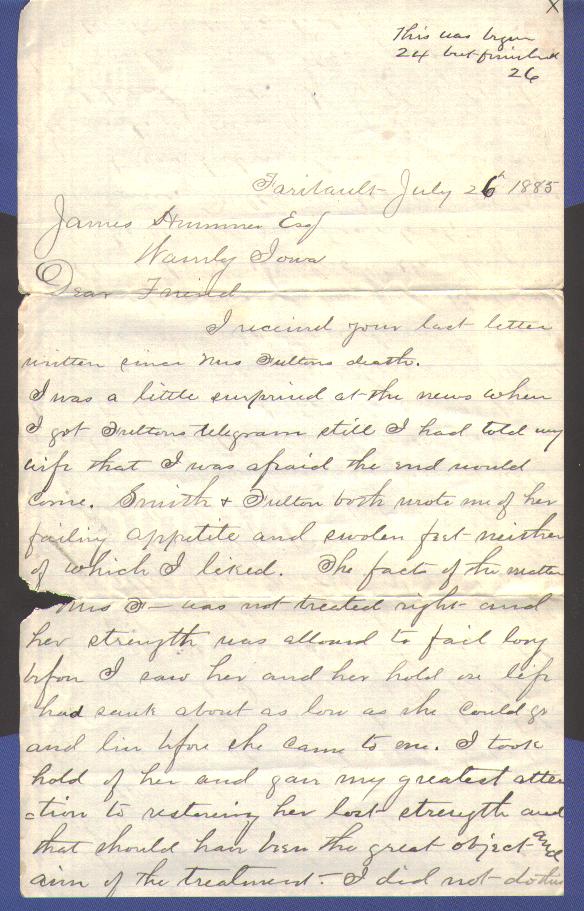 X
This was begun
24 but finished
26
Faribault July 26 1885
James Hummer Esq
Manly Iowa
Dear Friend
I received your last letter
written since Mrs Fultons death.
I was a little surprised at the news when
I got Fultons telegram still I had told my
wife that I was afraid the end would
come. Smith & Fulton both wrote me of her
failing appetite and swolen feet neither
of which I liked. The facts of the matter
Mrs F— was not treated right and
her strength was allowed to fail long
before I saw her and her hold on life
had sunk about as low as she could go
and live before she came to me. I took
hold of her and gave my greatest atten
ction to restoring her lost strength and
that should have been the great object and
aim of the treatment — I did not do this